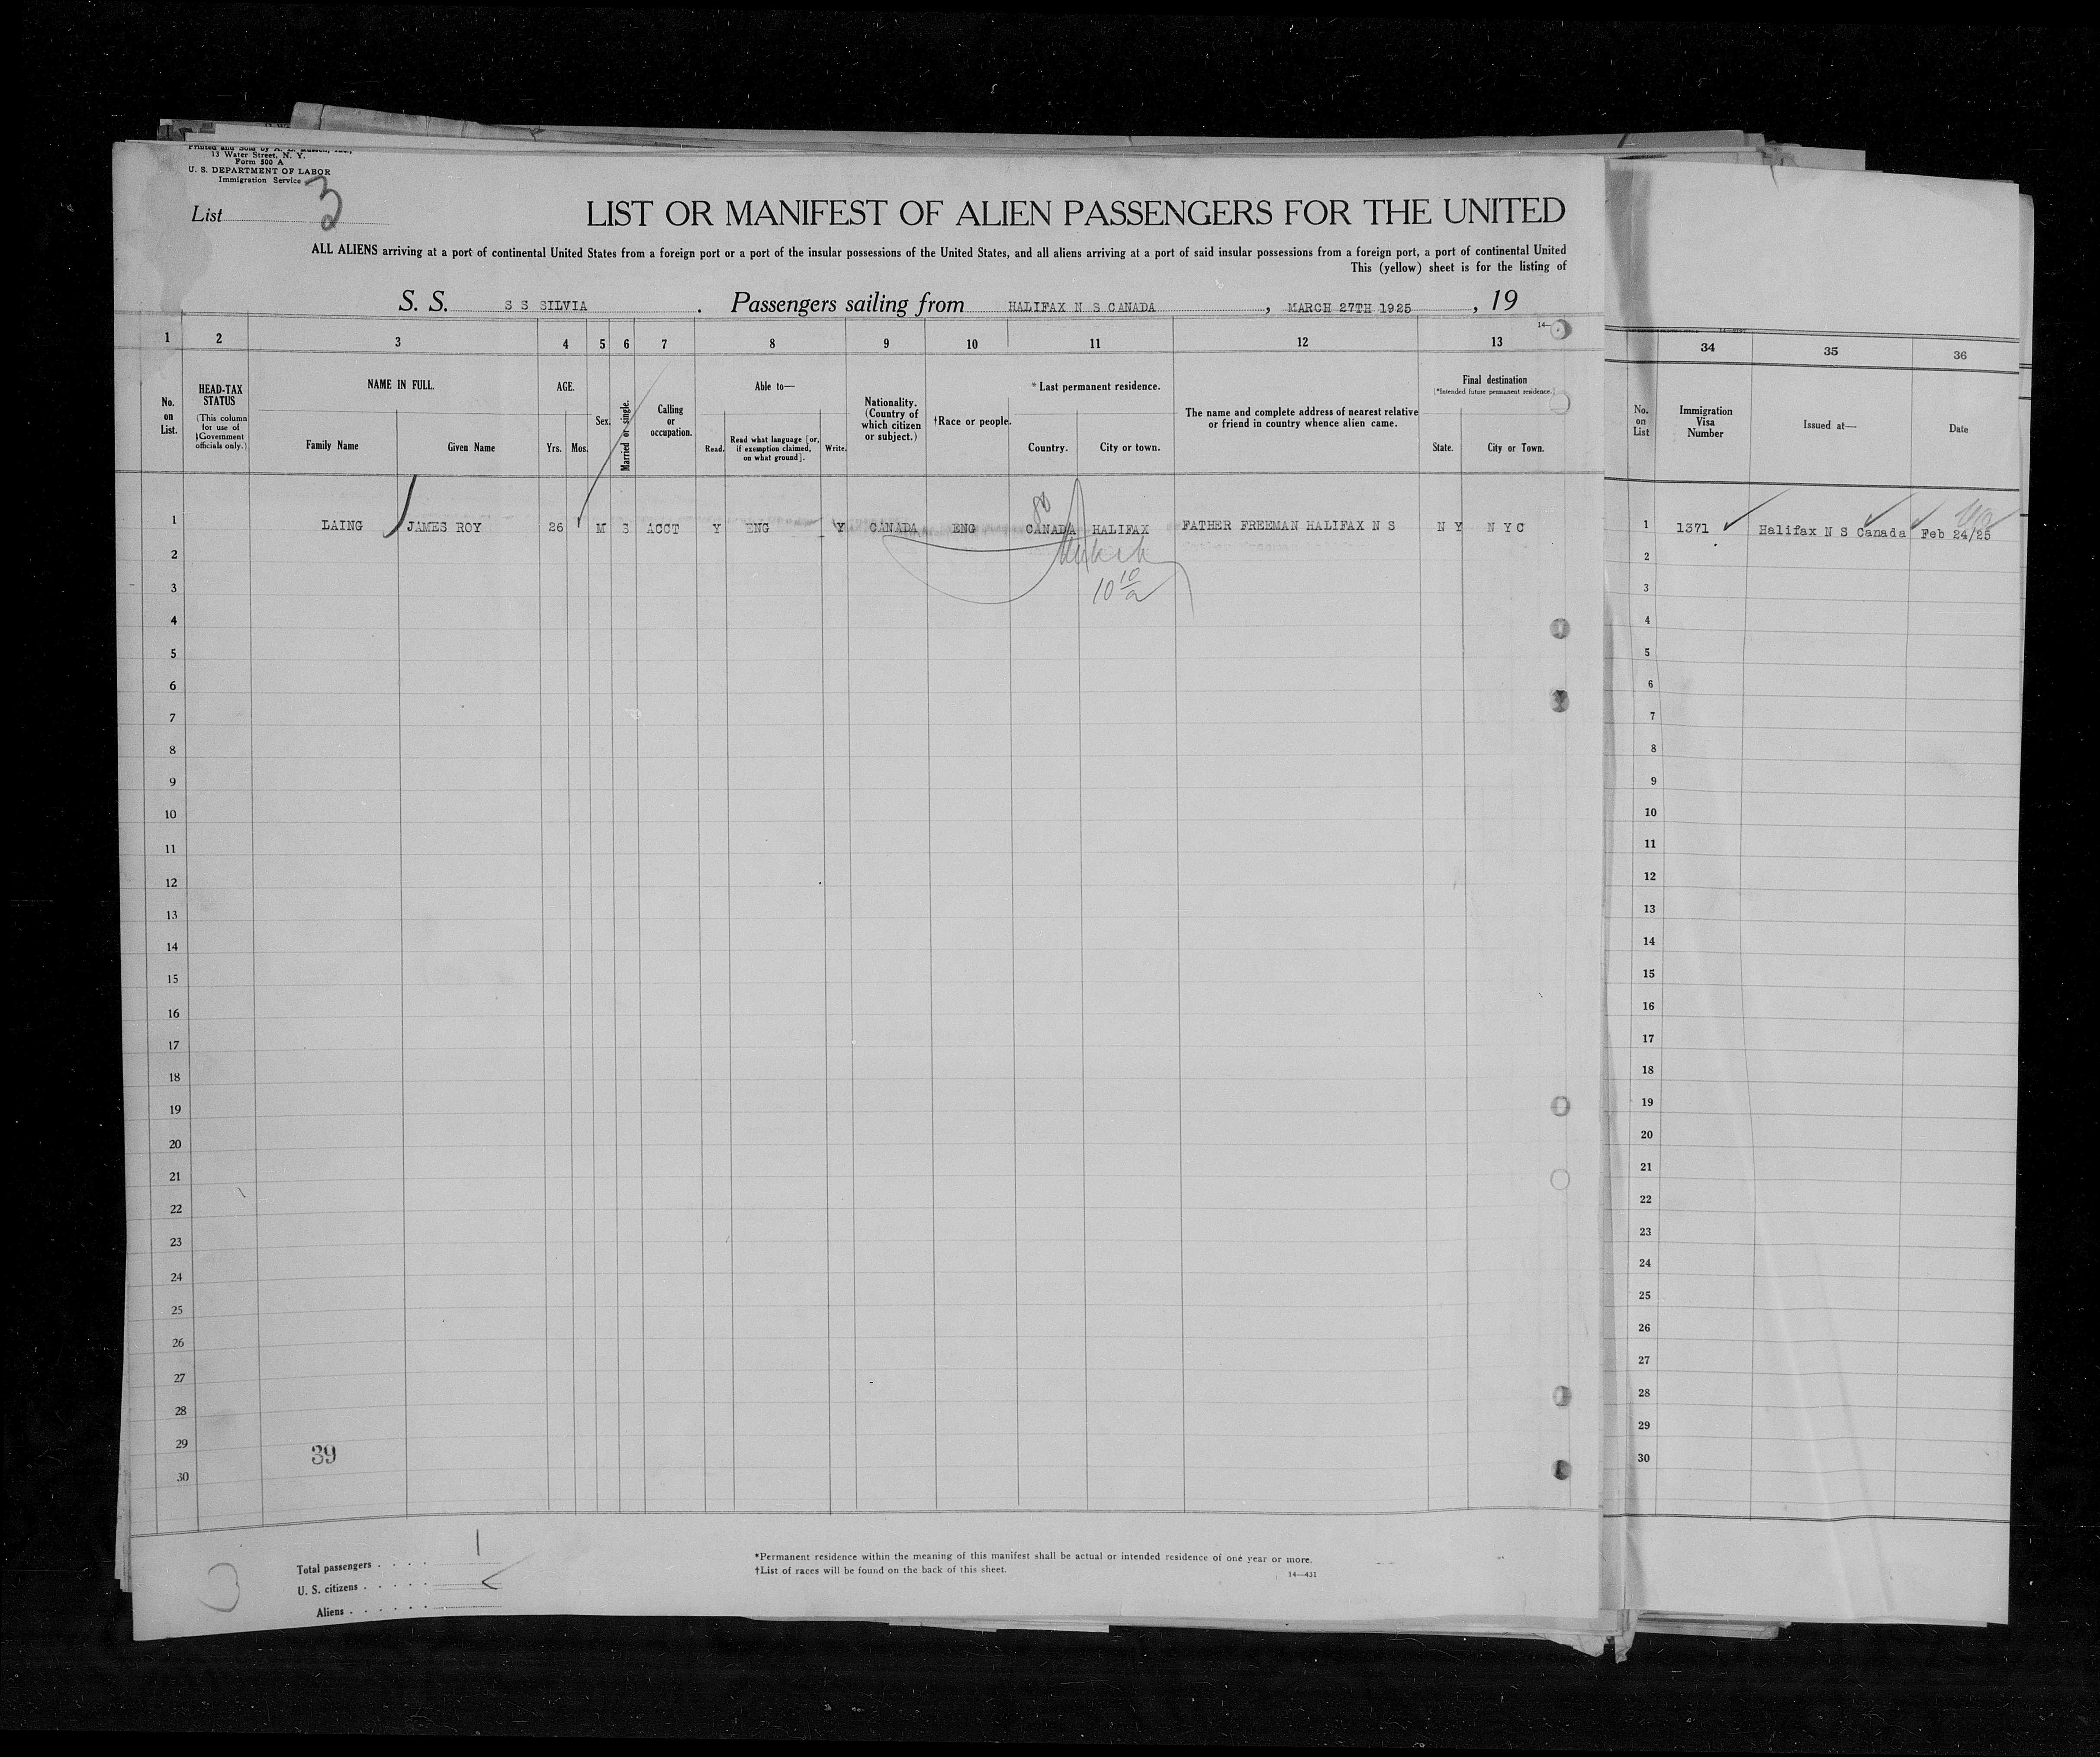 13 Water Street, N. Y.
Form 500 A
U. S. DEPARTMENT OF LABOR
Immigration Service
List 3
LIST OR MANIFEST OF ALIEN PASSENGERS FOR THE UNITED
ALL ALIENS arriving at a port of continental United States from a foreign port or a port of the insular possessions of the United States, and all aliens arriving at a port of said insular possessions from a foreign port, a port of continental United
This (yellow) sheet is for the listing of
S. S. S S SILVIA . Passengers sailing from HALIFAX N S CANADA , MARCH 27TH 1925 , 19
14—
1 2 3 4 5 6 7 8 9 10 11 12 13
No. on List.
HEAD-TAX STATUS
(This column for use of Government officials only.)
NAME IN FULL.
Family Name Given Name
AGE.
Yrs. Mos.
Sex.
Married or single.
Calling or occupation.
Able to—
Read. Read what language [or, if exemption claimed, on what ground]. Write.
Nationality. (Country of which citizen or subject.)
†Race or people.
*Last permanent residence.
Country. City or town.
The name and complete address of nearest relative or friend in country whence alien came.
Final destination
[*Intended future permanent residence.]
State. City or Town.
1 LAING JAMES ROY 26 M S ACCT Y ENG Y CANADA ENG CANADA HALIFAX FATHER FREEMAN HALIFAX N S N Y N Y C
2
3
4
5
6
7
8
9
10
11
12
13
14
15
16
17
18
19
20
21
22
23
24
25
26
27
28
29
39
30
Total passengers . . . . 1
U. S. citizens . . . . .
Aliens . . . . . .
3
*Permanent residence within the meaning of this manifest shall be actual or intended residence of one year or more.
†List of races will be found on the back of this sheet.
14—431
34 35 36
No. on List
Immigration Visa Number
Issued at—
Date
1 1371 Halifax N S Canada Feb 24/25
2
3
4
5
6
7
8
9
10
11
12
13
14
15
16
17
18
19
20
21
22
23
24
25
26
27
28
29
30